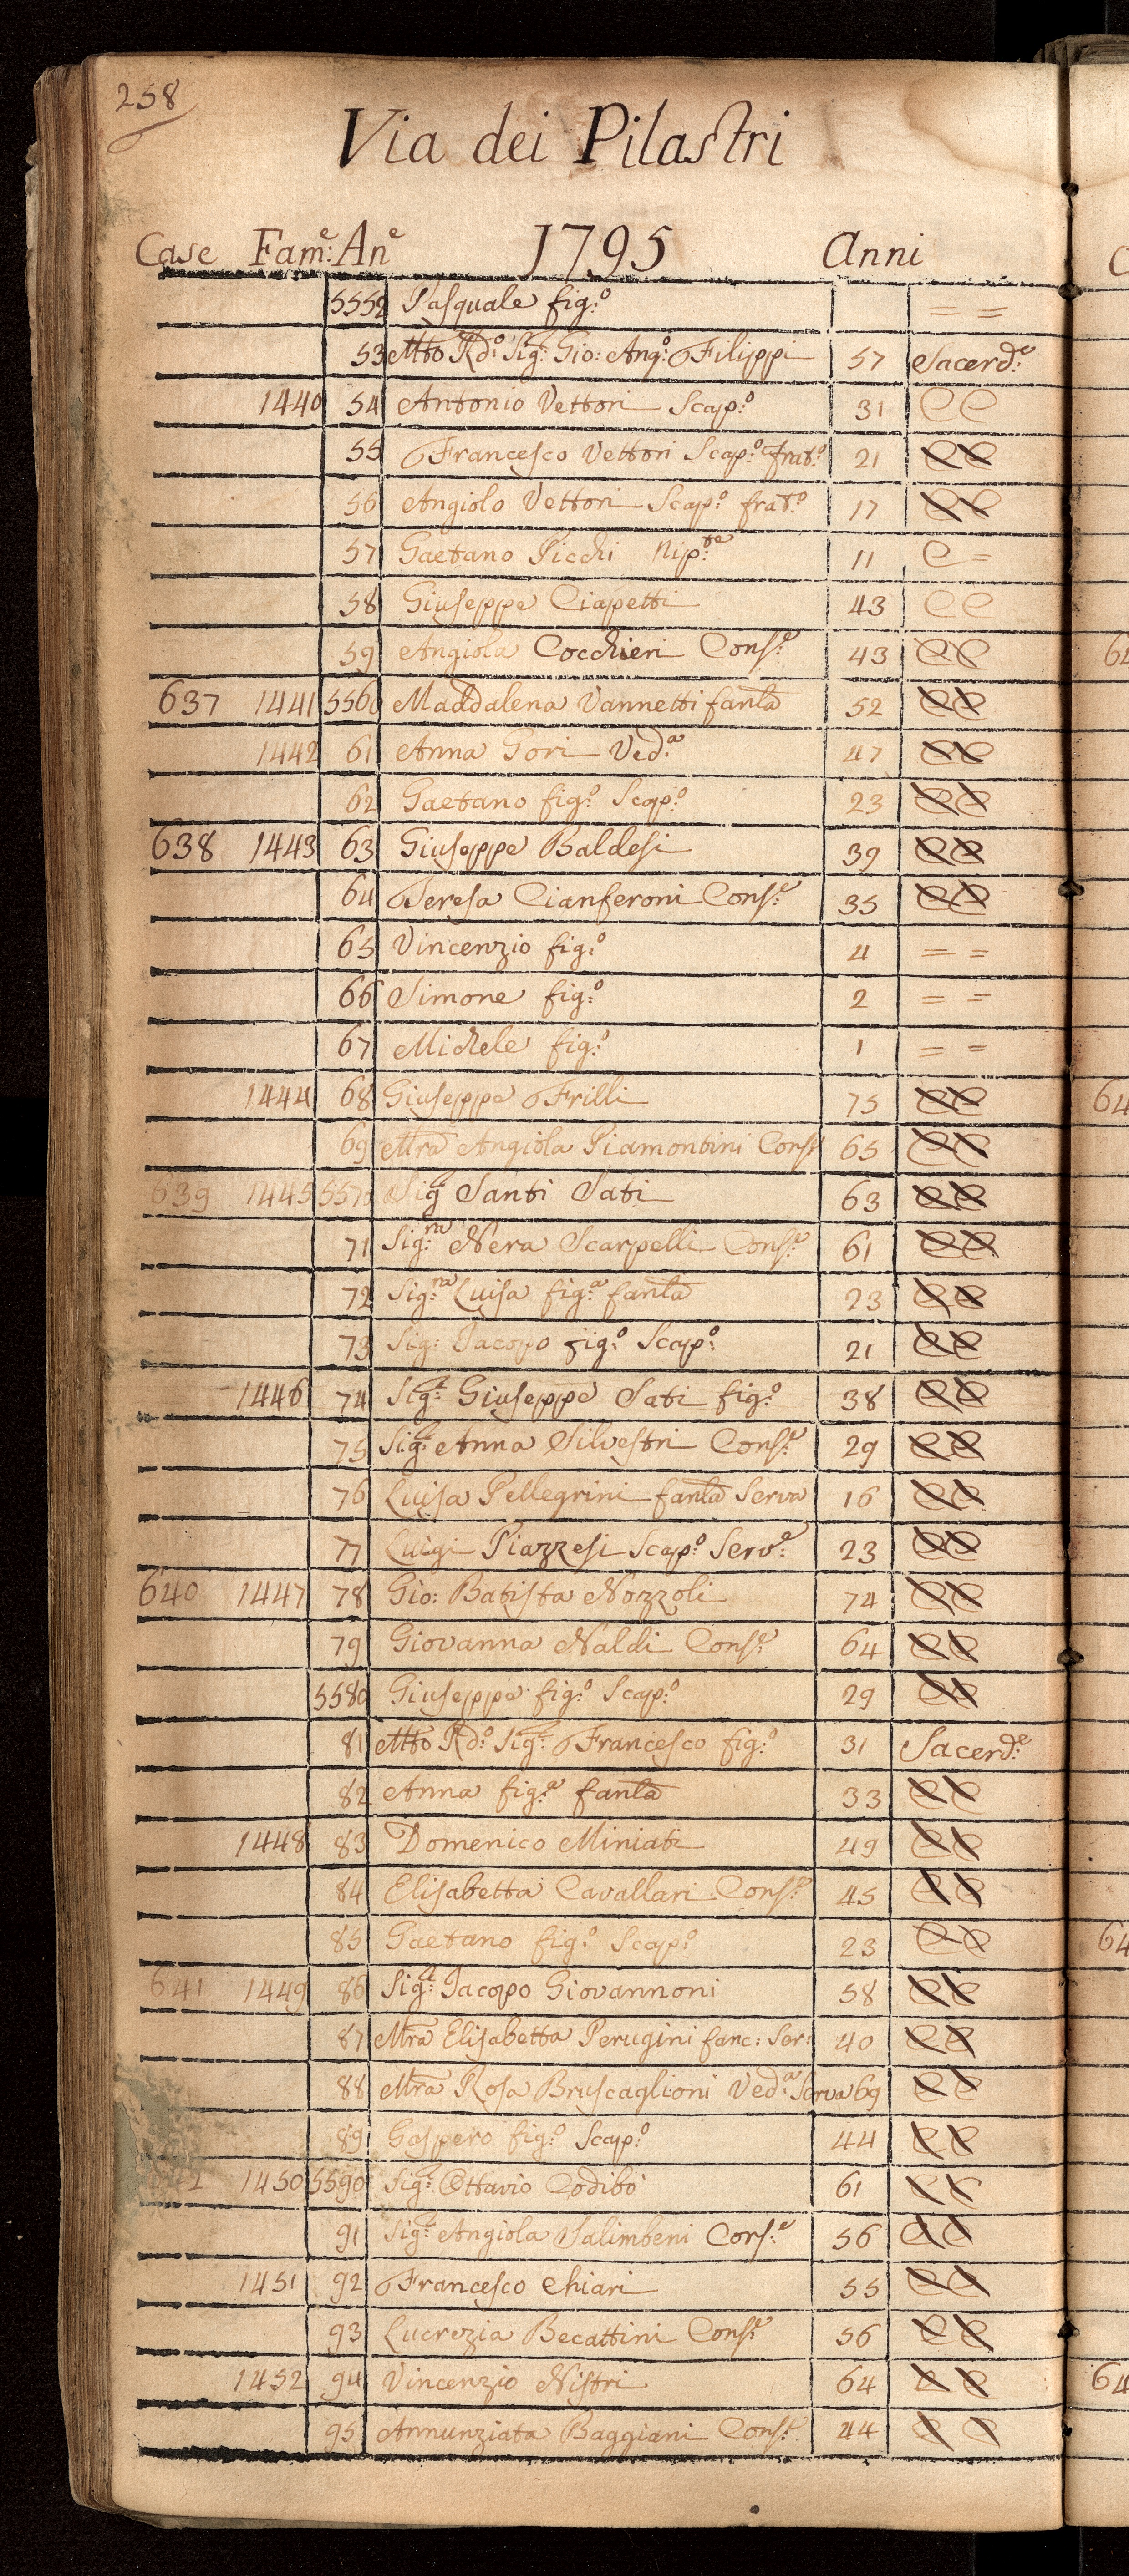 258
Via dei Pilastri
Case Fam:e An:e 1795 Anni
5552 Pasquale fig:o = =
53 Mto Rd:o Sig: Gio: Ang:o Filippi 57 Sacerd:e
1440 54 Antonio Vettori Scap:o 31 C C
55 Francesco Vettori Scap:o frat:o 21 C C
56 Angiolo Vettori Scap:o frat:o 17 C C
57 Gaetano Picchi Nip:te 11 C =
58 Giuseppe Ciapetti 43 C C
59 Angiola Cocchieri Cons:e 43 C C
637 1441 5560 Maddalena Vannetti fanla 52 C C
1442 61 Anna Gori Ved:a 47 C C
62 Gaetano fig:o Scap:o 23 C C
638 1443 63 Giuseppe Baldesi 39 C C
64 Teresa Cianferoni Cons:e 35 C C
65 Vincenzio fig:o 4 = =
66 Simone fig:o 2 = =
67 Michele fig:o 1 = =
1444 68 Giuseppe Frilli 75 C C
69 Mra Angiola Piamontini Cons: 65 C C
639 1445 557 Sig:e Santi Sati 63 C C
71 Sig:ra Nera Scarpelli Cons:e 61 C C
72 Sig:ra Luisa fig:a fanla 23 C C
73 Sig: Jacopo fig:o Scap:o 21 C C
1446 74 Sig:e Giuseppe Sati fig:o 38 C C
75 Sig:a Anna Silvestri Cons:e 29 C C
76 Luisa Pellegrini fanla Serva 16 C C
77 Luigi Piazzesi Scap:o Serv:e 23 C C
640 1447 78 Gio: Batista Nozzoli 74 C C
79 Giovanna Naldi Cons:e 64 C C
5580 Giuseppe fig:o Scap:o 29 C C
81 Mto Rd:o Sig:e Francesco fig:o 31 Sacerd:e
82 Anna fig:a fanla 33 C C
1448 83 Domenico Miniati 49 C C
84 Elisabetta Cavallari Cons:e 45 C C
85 Gaetano fig:o Scap:o 23 C C
641 1449 86 Sig:e Jacopo Giovannoni 58 C C
87 Mra Elisabetta Perugini fanc: Ser: 40 C C
88 Mra Rosa Bruscaglioni Ved:a Serva 69 C C
89 Gaspero fig:o Scap:o 44 C C
42 1450 5590 Sig:e Ottavio Codibò 61 C C
91 Sig:a Angiola Salimbeni Cons:e 56 C C
1451 92 Francesco Chiari 55 C C
93 Lucrezia Becattini Cons:e 56 C C
1452 94 Vincenzio Nistri 64 C C
95 Annunziata Baggiani Cons:e 44 C C